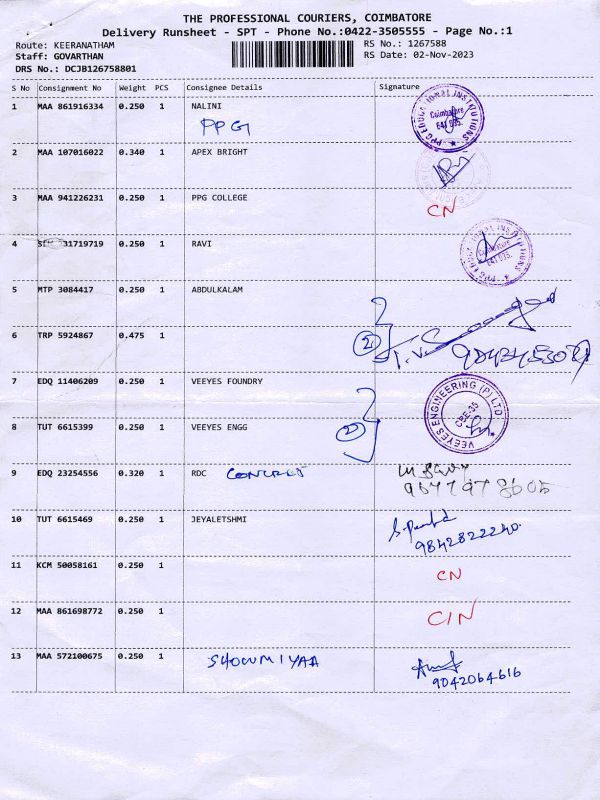 THE PROFESSIONAL COURIERS, COIMBATORE
Delivery Runsheet - SPT - Phone No.:0422-3505555 - Page No.:1
Route: KEERANATHAM
Staff: GOVARTHAN
DRS No.: DCJB126758801
RS No.: 1267588
RS Date: 02-Nov-2023
S No Consignment No Weight PCS Consignee Details Signature
1 MAA 861916334 0.250 1 NALINI
PPG
PPG EDUCATIONAL INSTITUTIONS
Coimbatore
641 035.
2 MAA 107016022 0.340 1 APEX BRIGHT
3 MAA 941226231 0.250 1 PPG COLLEGE CN
4 31719719 0.250 1 RAVI
PPG EDUCATIONAL INSTITUTIONS
Coimbatore
641 035.
5 MTP 3084417 0.250 1 ABDULKALAM
6 TRP 5924867 0.475 1 2
7 EDQ 11406209 0.250 1 VEEYES FOUNDRY
VEEYES ENGINEERING (P) LTD
CBE-35
8 TUT 6615399 0.250 1 VEEYES ENGG 2
9 EDQ 23254556 0.320 1 RDC
10 TUT 6615469 0.250 1 JEYALETSHMI
9842822240
11 KCM 50058161 0.250 1 CN
12 MAA 861698772 0.250 1 CIN
13 MAA 572100675 0.250 1 SHOWMIYAA
9042064616